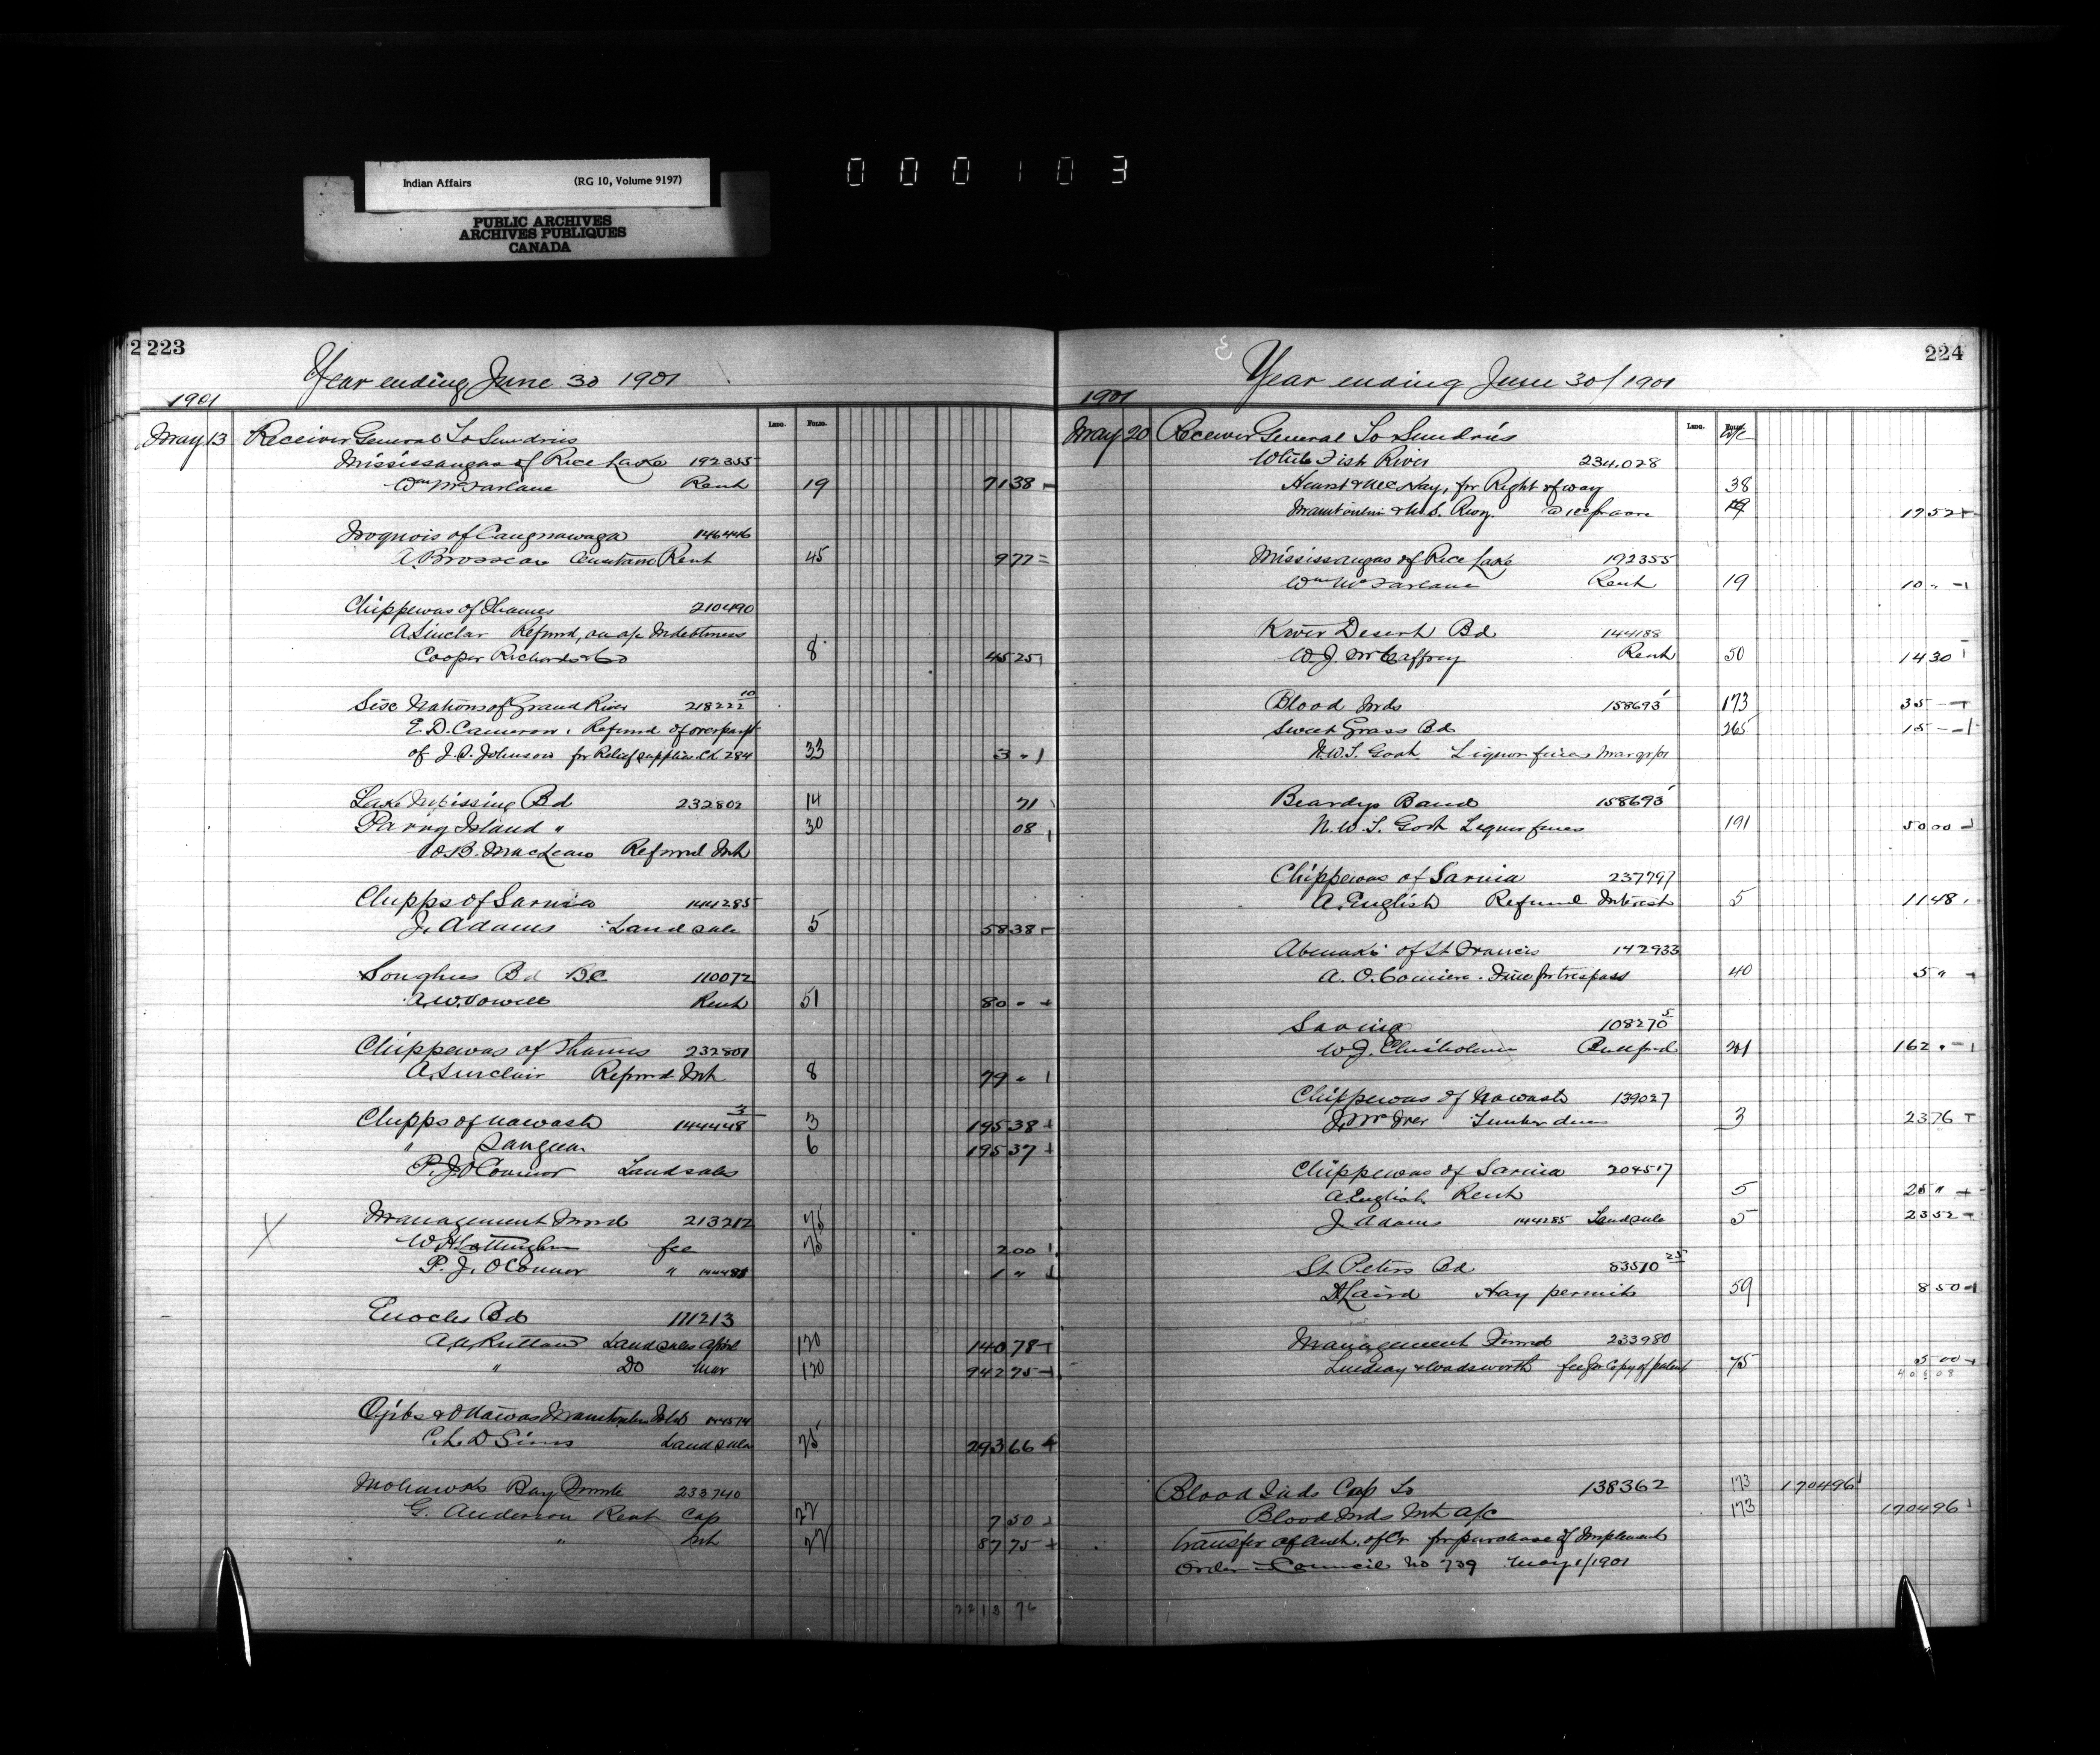 000103
Indian Affairs (RG 10, Volume 9197)
PUBLIC ARCHIVES
ARCHIVES PUBLIQUES
CANADA
223
Year ending June 30 1901
1901
Ledg. Folio.
May 13 Receiver General To Sundries
Mississaugas of Rice Lake 192355
Wm McFarlane Rent 19 71 38
Iroquois of Caughnawaga 146446
A. Brosseau Rent 45 9 77
Chippewas of Thames 210490
A. Sinclair Refund, on a/c Indebtness
Cooper Richards & Co 8 45 25
Six Nations of Grand River 218222 10
E. D. Cameron. Refund of overpayt
of J. S. Johnson for Relief supplies Ch 284 33 3 "
Lake Nipissing Bd 232802 14 71
Parry Island " 30 08
W. B. MacLean Refund Int
Chipps of Sarnia 144285
J. Adams Land sale 5 58 38
Songhees Bd B.C 110072
A. W. Vowell Rent 51 80 "
Chippewas of Thames 232801
A. Sinclair Refund Int 8 79 "
Chipps of Nawash 144448 3 3 195 38
" Saugeen 6 195 37
P. J. O'Connor Land sales
X Management Fund 213212 75
fee 75 2 00
P. J. O'Connor " 1 "
Enochs Bd 171213
A. A. Ruttan Land sales April 170 140 78
" Do Mar 170 942 75
Ojibs & Ottawas Manitoulin Isld 144514
C. L. D Sims Land sale 25 293 66
Mohawks Bay Quinte 233740
G. Anderson Rent Cap 22 7 50
" Int 22 87 75
2213 76
224
Year ending June 30/1901
1901
Ledg. Folio. a/c
May 20 Receiver General To Sundries
White Fish River 234.028
Hurst & McNay, for Right of way 38
Manitoulin & N.S. Rwy. 19 52
Mississaugas of Rice Lake 192355
Wm McFarlane Rent 19 10 "
River Desert Bd 144188
W. J. McCaffrey Rent 50 14 30
Blood Inds 158693 173 35
Sweet Grass Bd 265 15
N.W.T. Govt Liquor fines
Beardys Band 158693
N.W.T. Govt Liquor fines 191 50 00
Chippewas of Sarnia 237797
A. English Refund Interest 5 11 48
Abenakis of St Francis 142933
A. O. Comiere. Fine for trespass 40 5 "
Saving 108270 5
W. J. Chisholm 201 162 "
Chippewas of Nawash 139027
J. McIver Timber dues 3 23 76
Chippewas of Sarnia 204517
A. English Rent 5 25 "
J. Adams 144285 Land sale 5 23 52
St Peters Bd 83510 25
D Laird Hay permits 59 8 50
Management Fund 233980
Lindsay & Wadsworth fee for Copy of patent 75 5 00
Blood Inds Cap To 138362 173 1704 96
Blood Inds Int a/c 173 1704 96
Transfer of for purchase of Implements
Order in Council No 739 May 1/1901